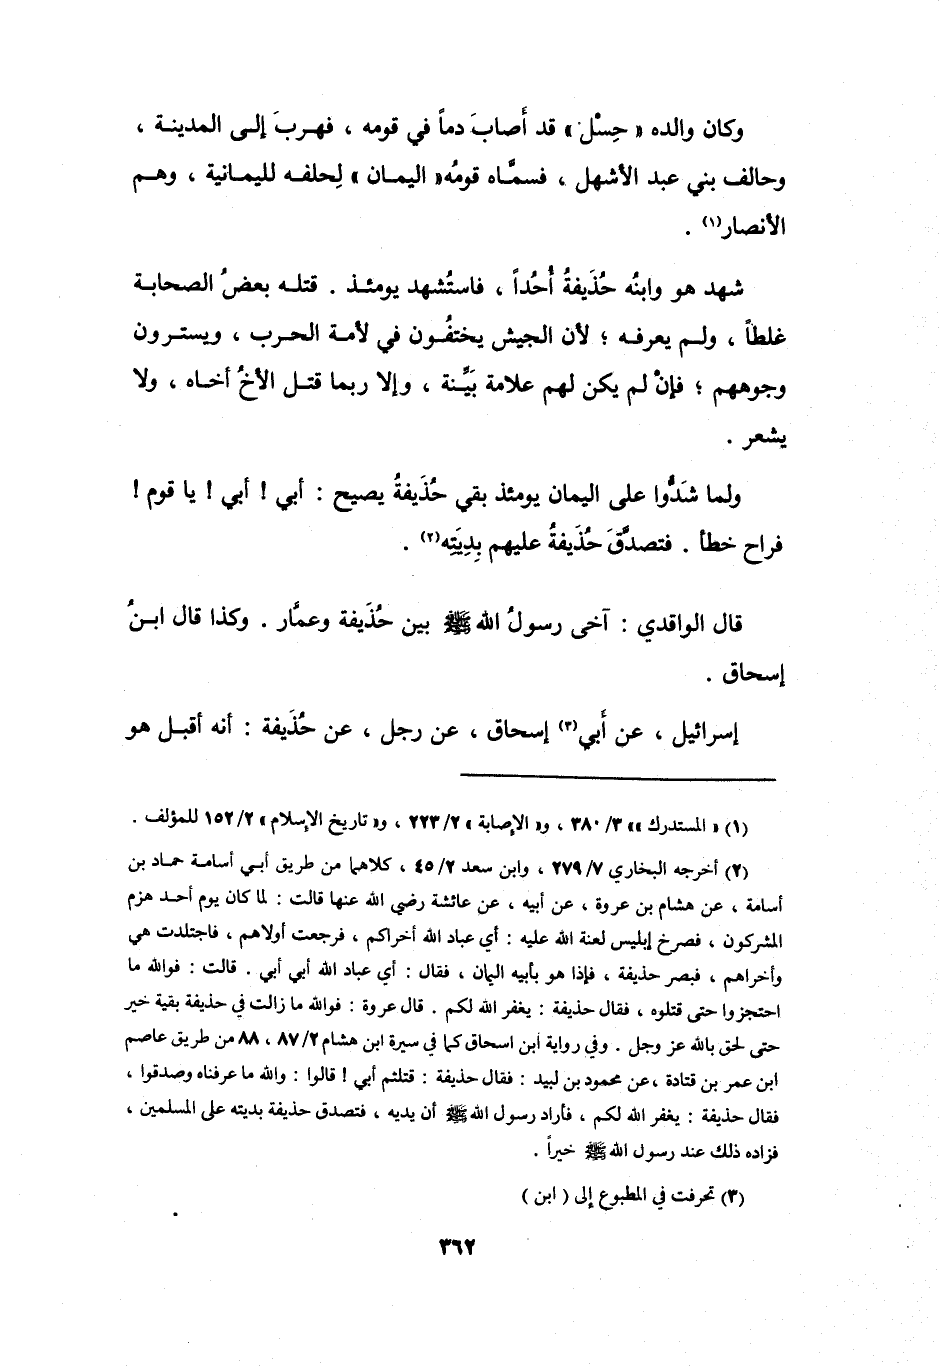 وكان والده « حِسْل » قد أَصابَ دماً في قومه ، فهربَ إلى المدينة ،
وحالف بني عبد الأشهل ، فسمَّاه قومُه« اليمان » لِحلفه لليمانية ، وهم
الأنصار(١) .
شهد هو وابنُه حُذَيفةُ أُحُداً ، فاستُشهد يومئذ . قتله بعضُ الصحابة
غلطاً ، ولم يعرفه ؛ لأن الجيش يختفُون في لأمة الحرب ، ويسترون
وجوههم ؛ فإنْ لم يكن لهم علامة بَيِّنة ، وإلا ربما قتل الأخُ أخاه ، ولا
يشعر .
ولما شَدُّوا على اليمان يومئذ بقي حُذَيفةُ يصيح : أبي ! أبي ! يا قوم !
فراح خطأ . فتصدَّقَ حُذَيفةُ عليهم بِدِيَتِه(٢) .
قال الواقدي : آخى رسولُ الله ﷺ بين حُذَيفة وعمَّار . وكذا قال ابنُ
إسحاق .
إسرائيل ، عن أَبي(٣) إسحاق ، عن رجل ، عن حُذَيفة : أنه أقبل هو
(١) « المستدرك »» ٣/ ٣٨٠ ، و« الإصابة » ٢/ ٢٢٣ ، و« تاريخ الإسلام » ٢/ ١٥٢ للمؤلف .
(٢) أخرجه البخاري ٧/ ٢٧٩ ، وابن سعد ٢/ ٤٥ ، كلاهما من طريق أبي أسامة حماد بن
أسامة ، عن هشام بن عروة ، عن أبيه ، عن عائشة رضي الله عنها قالت : لما كان يوم أحد هزم
المشركون ، فصرخ إبليس لعنة الله عليه : أي عباد الله أخراكم ، فرجعت أولاهم ، فاجتلدت هي
وأخراهم ، فبصر حذيفة ، فإذا هو بأبيه اليمان ، فقال : أي عباد الله أبي أبي . قالت : فوالله ما
احتجزوا حتى قتلوه ، فقال حذيفة : يغفر الله لكم . قال عروة : فوالله ما زالت في حذيفة بقية خير
حتى لحق بالله عز وجل . وفي رواية ابن اسحاق كما في سيرة ابن هشام ٢/ ٨٧ ، ٨٨ من طريق عاصم
ابن عمر بن قتادة ،عن محمود بن لبيد : فقال حذيفة : قتلتم أبي ! قالوا : والله ما عرفناه وصدقوا ،
فقال حذيفة : يغفر الله لكم ، فأراد رسول الله ﷺ أن يديه ، فتصدق حذيفة بديته على المسلمين ،
فزاده ذلك عند رسول الله ﷺ خيراً .
(٣) تحرفت في المطبوع إلى ( ابن )
٣٦٢